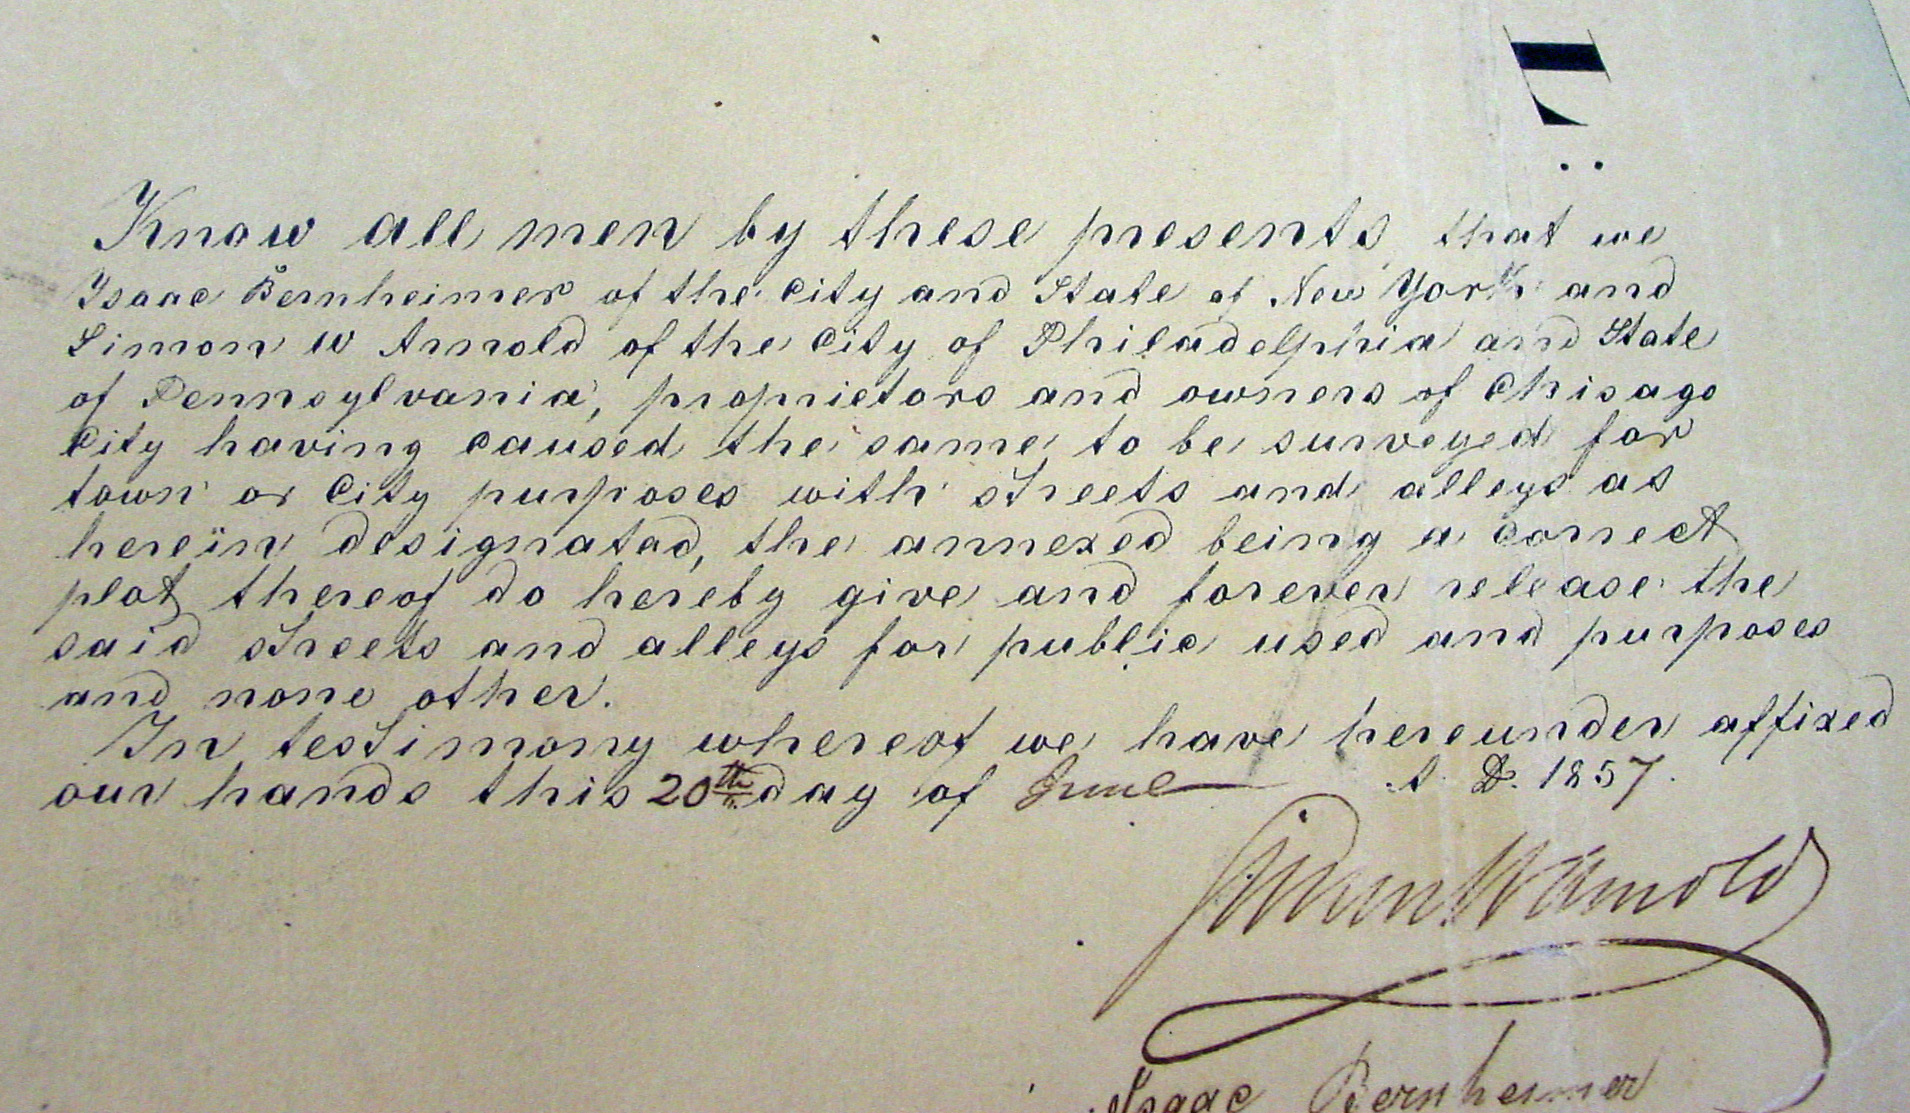 Know all men by these presents that we
Isaac Bernheimer of the City and State of New York and
Simon W Arnold of the City of Philadelphia and State
of Pennsylvania, proprietors and owners of Chisago
City having caused the same to be surveyed for
town or City purposes with streets and alleys as
herein designated, the annexed being a correct
plat thereof do hereby give and forever release the
said streets and alleys for public used and purposes
and none other.
In testimony whereof we have hereunder affixed
our hands this 20th day of June A. D. 1857.
Simon W Arnold
Isaac Bernheimer